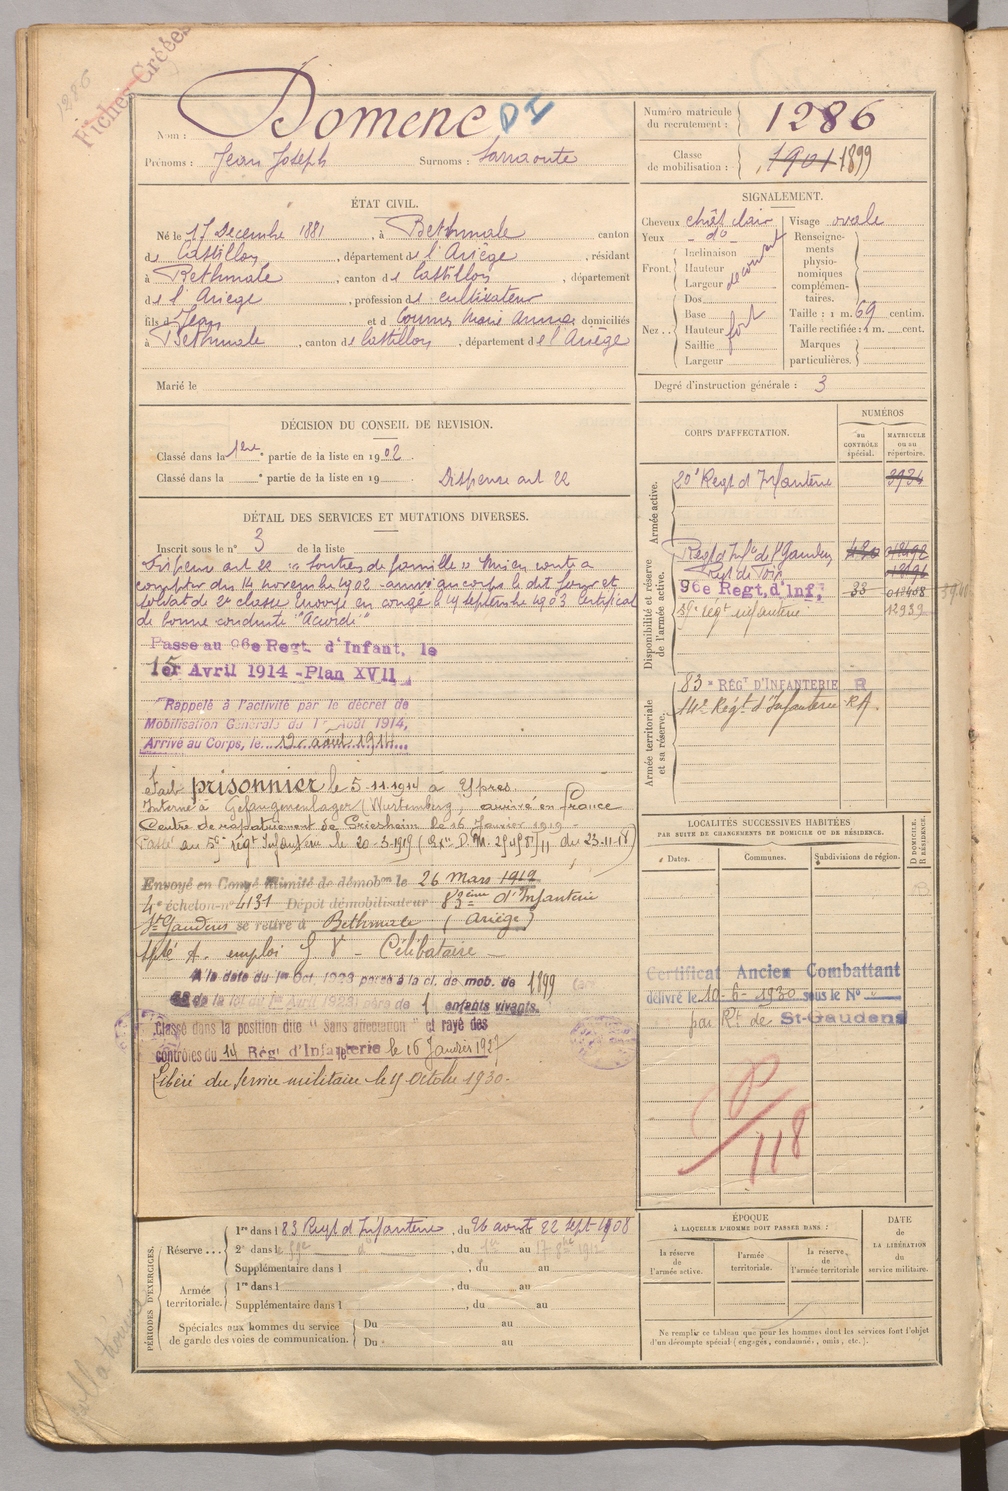 1286
Fiches Créées
Nom : Domenc
Prénoms : Jean Joseph Surnoms :
Numéro matricule du recrutement : 1286
Classe de mobilisation : 1901 1899
ÉTAT CIVIL.
Né le 17 Decembre 1881, à Bethmale canton
de Castillon, département de l'Ariège, résidant
à Bethmale, canton de Castillon, département
de l'Ariège, profession de cultivateur
fils de Jean et d Marie Anna domiciliés
à Bethmale, canton de Castillon, département de l'Ariège
Marié le
SIGNALEMENT.
Cheveux chât clair Visage ovale
Yeux - do -
Front. Inclinaison
Hauteur
Largeur
Nez. Dos
Base
Hauteur fort
Saillie
Largeur
Renseignements physionomiques complémentaires.
Taille : 1 m. 69 centim.
Taille rectifiée : 1 m. cent.
Marques particulières.
Degré d'instruction générale : 3
DÉCISION DU CONSEIL DE REVISION.
Classé dans la 1ère partie de la liste en 1902.
Classé dans la e partie de la liste en 19 Dispensé art 22
DÉTAIL DES SERVICES ET MUTATIONS DIVERSES.
Inscrit sous le n° 3 de la liste
Dispensé art 22 "Soutien de famille" Mis en route à
compter du 14 novembre 1902 arrivé au corps le dit jour et
soldat de 2e classe Envoyé en congé le 19 septembre 1903 Certificat
de bonne conduite "Accordé"
Passé au 96e Regt. d'Infant. le
15 Avril 1914 - Plan XVII
Rappelé à l'activité par le décret de
Mobilisation Générale du 1er août 1914,
Arrivé au Corps, le 12 août 1914
Fait prisonnier le 5-11-1914 à Yppres
Interné à Gefangenenlager (Wurtemberg), arrivé en France
Centre de rapatriement de Griesheim le 16 Janvier 1919 -
Passé au 59e régt Infanterie le 20-3-1919 du 23-11-18)
Envoyé en Congé illimité de démobon le 26 Mars 1919
4e échelon - n° 4131 Dépôt démobilisateur 83ème d'Infanterie
St Gaudens se retire à Bethmale (Ariège)
Célibataire
A la date du 1er Oct. 1923 passé à la cl. de mob. de 1899
de la loi du 1er Avril 1923 père de 1 enfants vivants.
Classé dans la position dite "Sans affectation" et rayé des
contrôles du 14 Régt d'Infanterie le 16 Janvier 1927
Libéré du service militaire le 15 Octobre 1930.
CORPS D'AFFECTATION.
NUMÉROS
au CONTRÔLE spécial.
MATRICULE ou au répertoire.
Armée active.
20e Regt d'Infanterie 3934
Disponibilité et réserve de l'armée active.
Regt d'Infie de St Gaudens
96e Regt. d'Inf. 33
59e régt infanterie 12939
Armée territoriale et sa réserve.
83e RÉGT D'INFANTERIE R
14e Régt d'Infanterie RA.
LOCALITÉS SUCCESSIVES HABITÉES
PAR SUITE DE CHANGEMENTS DE DOMICILE OU DE RÉSIDENCE.
Dates. Communes. Subdivisions de région.
D DOMICILE. R RÉSIDENCE.
Certificat Ancien Combattant
délivré le 10-6-1930 sous le N°
par Rt de St-Gaudens
P/118
PÉRIODES D'EXERCICES.
Réserve ... 1re dans l 83 Regt d'Infanterie, du 26 août au 22 sept 1908
2e dans l , du 1er au 17
Supplémentaire dans l , du au
Armée territoriale. 1re dans l , du au
Supplémentaire dans l , du au
Spéciales aux hommes du service de garde des voies de communication. Du au
Du au
ÉPOQUE
À LAQUELLE L'HOMME DOIT PASSER DANS :
la réserve de l'armée active. l'armée territoriale. la réserve de l'armée territoriale
DATE de LA LIBÉRATION du service militaire.
Ne remplir ce tableau que pour les hommes dont les services font l'objet
d'un décompte spécial (engagés, condamnés, omis, etc.).